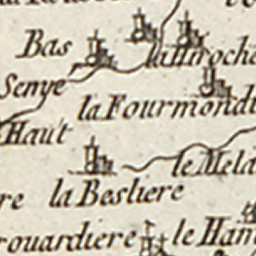 Bas
Senyé
la Fourmondi
Haut
le Mela
la Besliere
rouardiere
le Ham